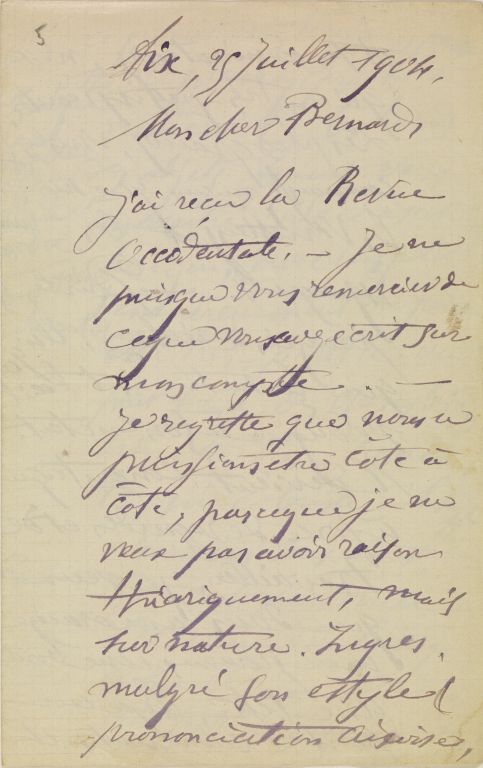 5
Aix, 25 Juillet 1904,
Mon cher Bernard
J'ai reçu la Revue
Occidentale. — Je ne
puis que vous remercier de
ce que vous avez écrit sur
mon compte. —
Je regrette que nous ne
puissions être côte à
côte, parceque je ne
veux pas avoir raison
théoriquement, mais
sur nature. Ingres,
malgré son estyle (
prononciation aixoise,